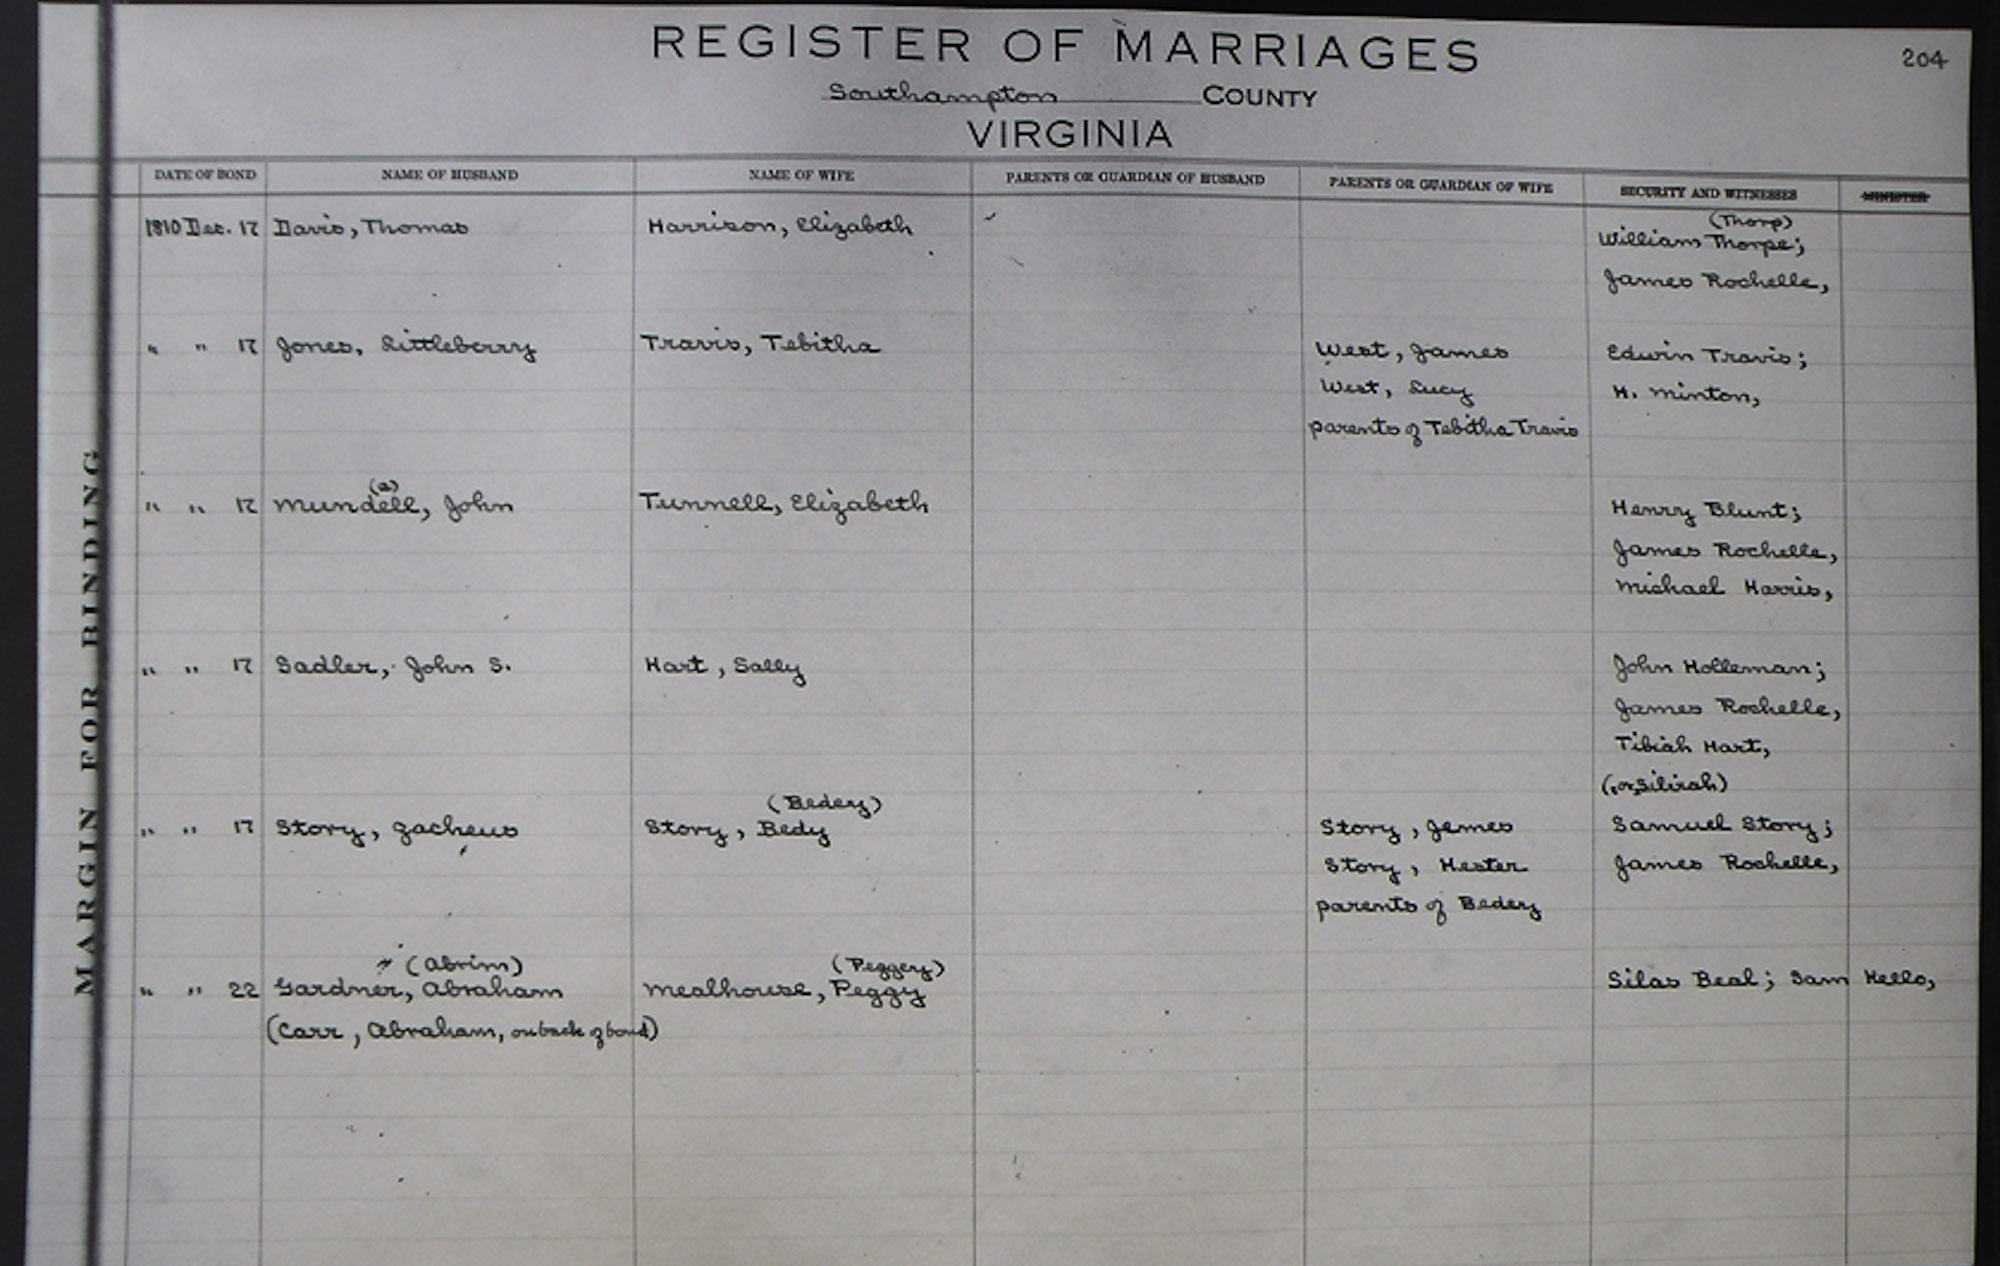 REGISTER OF MARRIAGES
204
Southampton COUNTY
VIRGINIA
DATE OF BOND NAME OF HUSBAND NAME OF WIFE PARENTS OR GUARDIAN OF HUSBAND PARENTS OR GUARDIAN OF WIFE SECURITY AND WITNESSES MINISTER
(Thorp)
1810 Dec. 17 Davis, Thomas Harrison, Elizabeth William Thorpe;
James Rochelle,
" " 17 Jones, Littleberry Travis, Tebitha West, James Edwin Travis;
West, Lucy H. Minton,
parents of Tebitha Travis
(a)
" " 17 Mundell, John Tunnell, Elizabeth Henry Blunt;
James Rochelle,
Michael Harris,
" " 17 Sadler, John S. Hart, Sally John Holleman;
James Rochelle,
Tibiah Hart,
(or, Silirah)
(Bedey)
" " 17 Story, Zacheus Story, Bedy Story, James Samuel Story;
Story, Hester James Rochelle,
parents of Bedey
(Abrim) (Peggey)
" " 22 Gardner, Abraham Mealhouse, Peggy Silas Beal; Sam Hello,
(Carr, Abraham, on back of bond)
MARGIN FOR BINDING